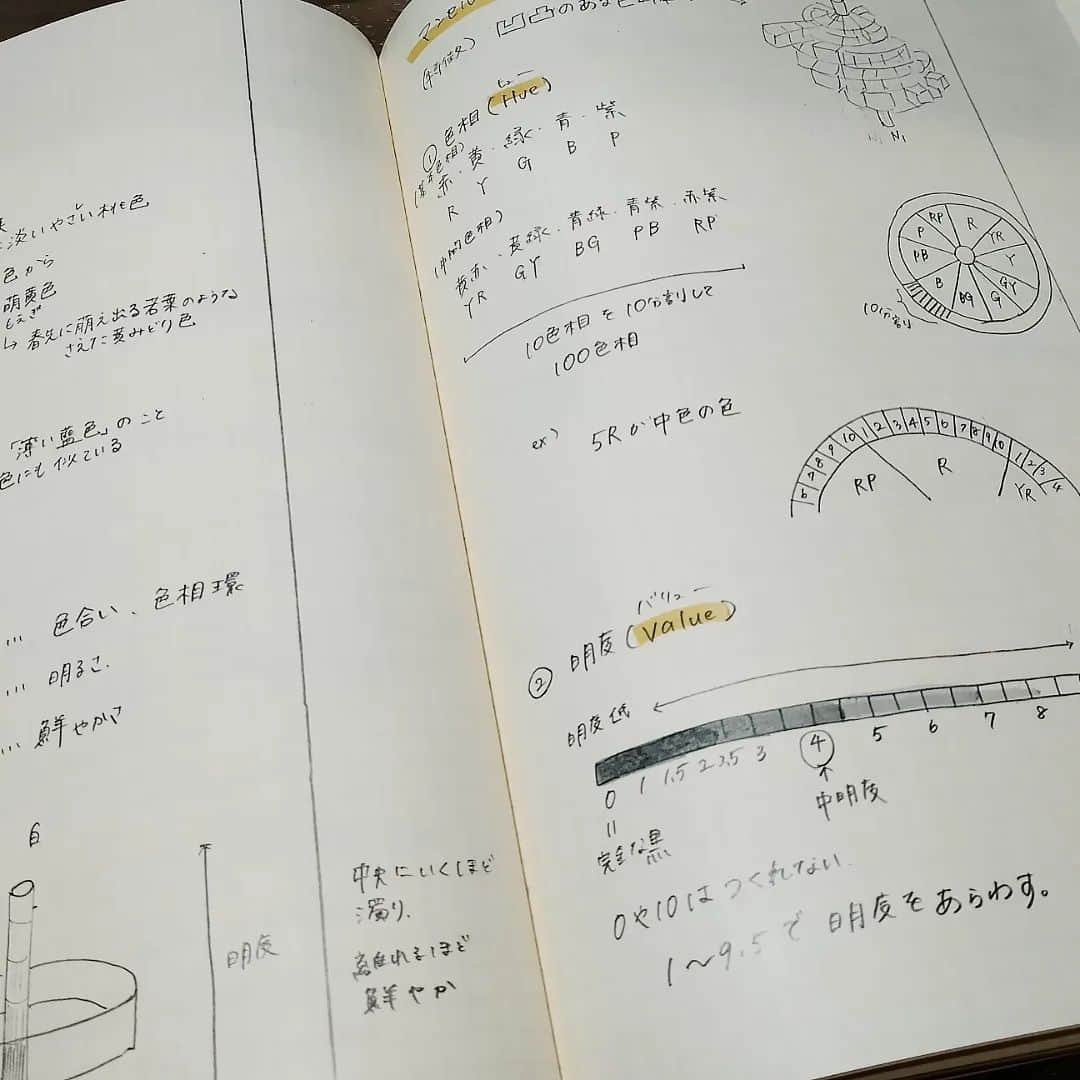 淡いやさしい桃色
色から
萌黄色
もえぎ
↳ 春先に萌え出る若葉のような
さえた黄みどり色
「薄い藍色」のこと
色にも似ている
… 色合い、色相環
… 明るさ.
… 鮮やかさ
白
明度
中央にいくほど
濁り.
離れるほど
鮮やか
凹凸のある
ヒュー
① 色相 (Hue)
(基本色相)
赤・黄・緑・青・紫
R Y G B P
(中間色相)
黄赤・黄緑・青緑・青紫・赤紫
YR GY BG PB RP
10色相を10分割して
100色相
RP R YR Y GY G BG B PB P
10分割
ex) 5Rが中色の色
6 7 8 9 10 1 2 3 4 5 6 7 8 9 10 1 2 3 4
RP R YR
バリュー
② 明度 (Value)
明度低
0 1 1.5 2 2.5 3 4 5 6 7 8
=
完全な黒
↑
中明度
0や10はつくれない.
1〜9.5で明度をあらわす。